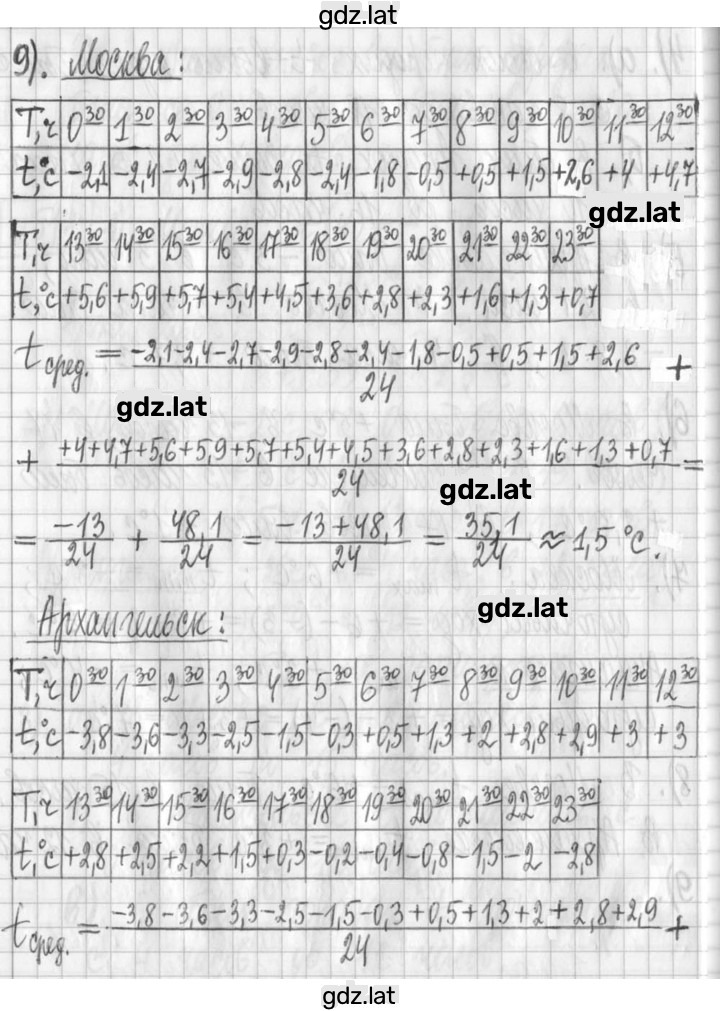 gdz.lat
9). Москва:
T,ч 0³⁰ 1³⁰ 2³⁰ 3³⁰ 4³⁰ 5³⁰ 6³⁰ 7³⁰ 8³⁰ 9³⁰ 10³⁰ 11³⁰ 12³⁰
t,°C -2,1 -2,4 -2,7 -2,9 -2,8 -2,4 -1,8 -0,5 +0,5 +1,5 +2,6 +4 +4,7
gdz.lat
T,ч 13³⁰ 14³⁰ 15³⁰ 16³⁰ 17³⁰ 18³⁰ 19³⁰ 20³⁰ 21³⁰ 22³⁰ 23³⁰
t,°C +5,6 +5,9 +5,7 +5,4 +4,5 +3,6 +2,8 +2,3 +1,6 +1,3 +0,7
t сред. = (-2,1-2,4-2,7-2,9-2,8-2,4-1,8-0,5+0,5+1,5+2,6)/24 +
gdz.lat
+ (+4+4,7+5,6+5,9+5,7+5,4+4,5+3,6+2,8+2,3+1,6+1,3+0,7)/24 =
gdz.lat
= -13/24 + 48,1/24 = (-13+48,1)/24 = 35,1/24 ≈ 1,5 °C.
gdz.lat
Архангельск:
T,ч 0³⁰ 1³⁰ 2³⁰ 3³⁰ 4³⁰ 5³⁰ 6³⁰ 7³⁰ 8³⁰ 9³⁰ 10³⁰ 11³⁰ 12³⁰
t,°C -3,8 -3,6 -3,3 -2,5 -1,5 -0,3 +0,5 +1,3 +2 +2,8 +2,9 +3 +3
T,ч 13³⁰ 14³⁰ 15³⁰ 16³⁰ 17³⁰ 18³⁰ 19³⁰ 20³⁰ 21³⁰ 22³⁰ 23³⁰
t,°C +2,8 +2,5 +2,2 +1,5 +0,3 -0,2 -0,4 -0,8 -1,5 -2 -2,8
t сред. = (-3,8-3,6-3,3-2,5-1,5-0,3+0,5+1,3+2+2,8+2,9)/24 +
gdz.lat